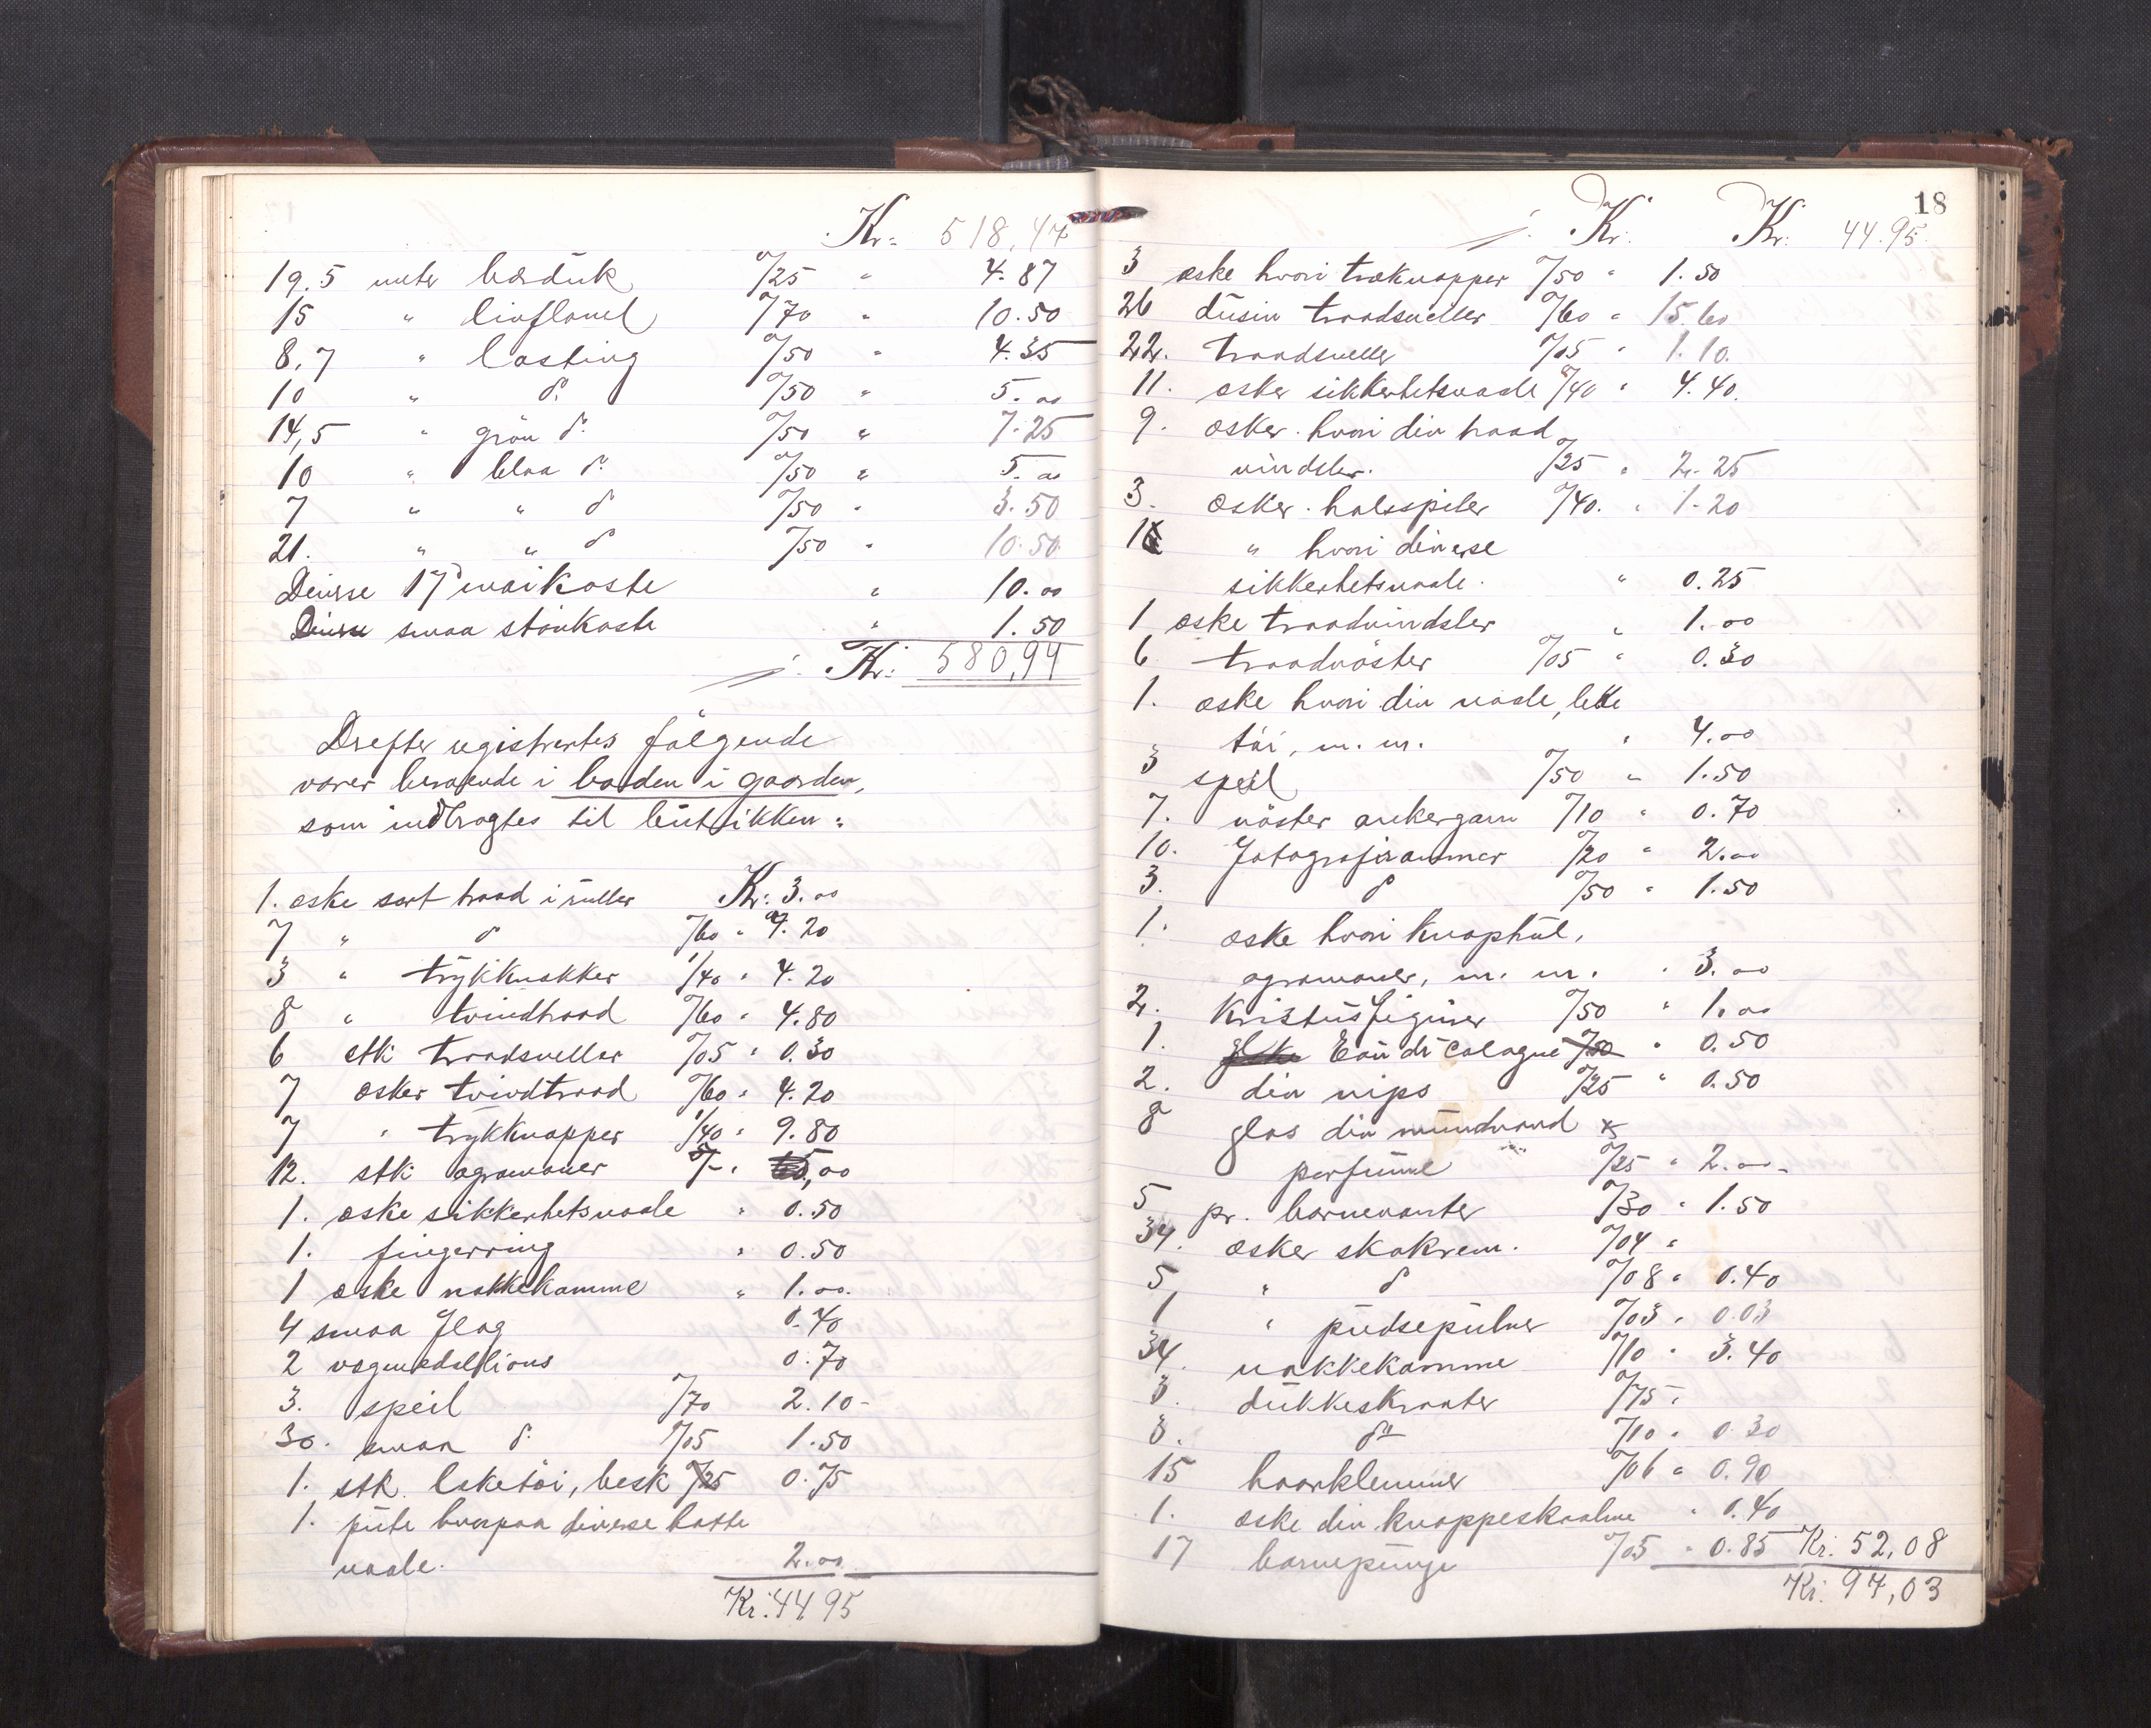 Kr. 518,47
19.5 meter bordduk %25 " 4.87
15 " linflanel %70 " 10.50
8,7 " lasting %50 " 4.35
10 " do %50 " 5.00
14,5 " grön do %50 " 7.25
10 " blaa do %50 " 5.00
7 " " do %50 " 3.50
21. " " do %50 " 10.50
Diverse 17 maikoste " 10.00
Diverse smaa stövkoste " 1.50
Kr. 580,94
Derefter registrertes følgende
varer beroende i boden i gaarden,
som indbragtes til butikken:
1. æske sort traad i ruller Kr. 3.00
7 " do %60 " 4.20
3 " trykknakker 1/40 " 4.20
8 " tvindtraad %60 " 4.80
6 stk traadsneller %05 " 0.30
7 æsker tvindtraad %60 " 4.20
7 " trykknapper 1/40 " 9.80
12. stk agramaner
1. æske sikkerhetsnaale " 0.50
1. fingerring " 0.50
1 æske nakkekamme " 1.00
4 smaa flag 0.40
2 vognmedaillions 0.70
3. speil %70 2.10
30. smaa do %05 1.50
1. stk. leketöi, besk 0.75
1. pute hvorpaa diverse hatte
naale. 2.00
Kr. 44,95
18
Kr. Kr. 44.95
3 æske hvori træknapper %50 " 1.50
26 dusin traadsneller %60 " 15.60
22. traadsneller %05 " 1.10.
11. æsker sikkerhetsnaale %40 " 4.40.
9. æsker hvori div traad
vindsler. %25 " 2.25
3. æsker halsspiler %40. " 1.20
1 " hvori diverse
sikkerhetsnaale. " 0.25
1 æske traadvindsler " 1.00
6 traadnöster %05 " 0.30
1. æske hvori div naale, leke
töi, m. m. " 4.00
3 speil %50 " 1.50
7. nöster ankergarn %10 " 0.70
10. Fotografirammer %20 " 2.00
3. do %50 " 1.50
1. æske hvori knaphul,
agramaner, m. m. " 3.00
2. Kristusfigurer %50 " 1.00
1. Eau de Cologne %50 " 0.50
2. div nips %25 " 0.50
8 glas div mundvand &
parfume %25 " 2.00
5 pr. barnevanter %30 " 1.50
34. æsker skokrem. %04 "
5 " do %08 " 0.40
1 " pudsepulver %03 " 0.03
34. nakkekamme %10 " 3.40
3. dukkeskranter %75 "
3. do %10 " 0.30
15 haarklemmer %06 " 0.90
1. æske div. knappeskaalne " 0.40
17 barnepunge %05 " 0.85 Kr. 52,08
Kr. 97,03